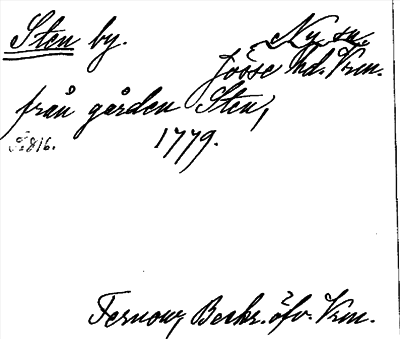 Sten by.
Ny sn.
Jösse hd. Vrm.
från gården Sten,
1779.
S. 816.
Fernow, Beskr. öfv. Vrm.